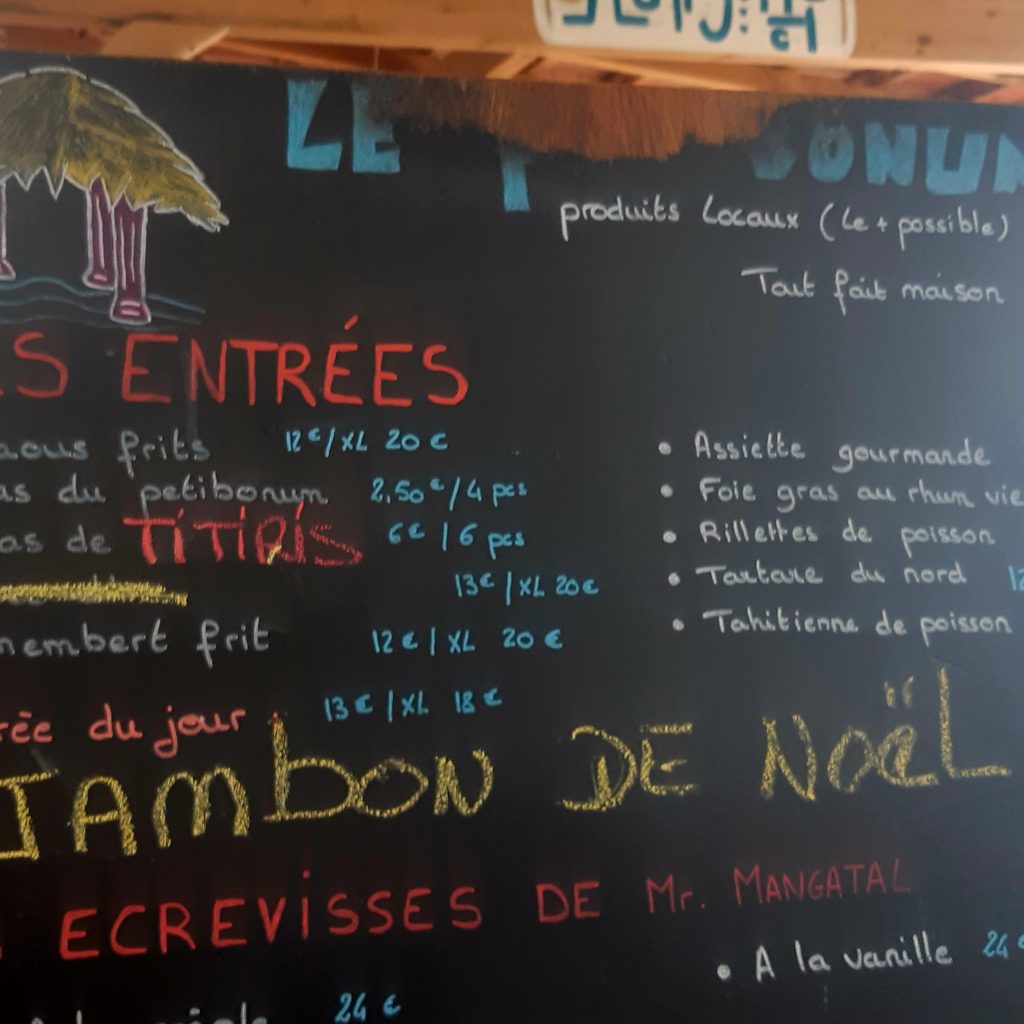 LE
produits Locaux (Le + possible)
Tout fait maison
ENTRÉES
frits 12€/XL 20€
du petibonum 2,50€/4 pcs
de TITIRIS 6€/6 pcs
13€/XL 20€
frit 12€/XL 20€
du jour : 13€/XL 18€
• Assiette gourmande
• Foie gras au rhum
• Rillettes de poisson
• Tartare du nord
• Tahitienne de poisson
JAMBON DE NOËL
ECREVISSES DE Mr. MANGATAL
• A la vanille 24€
24€